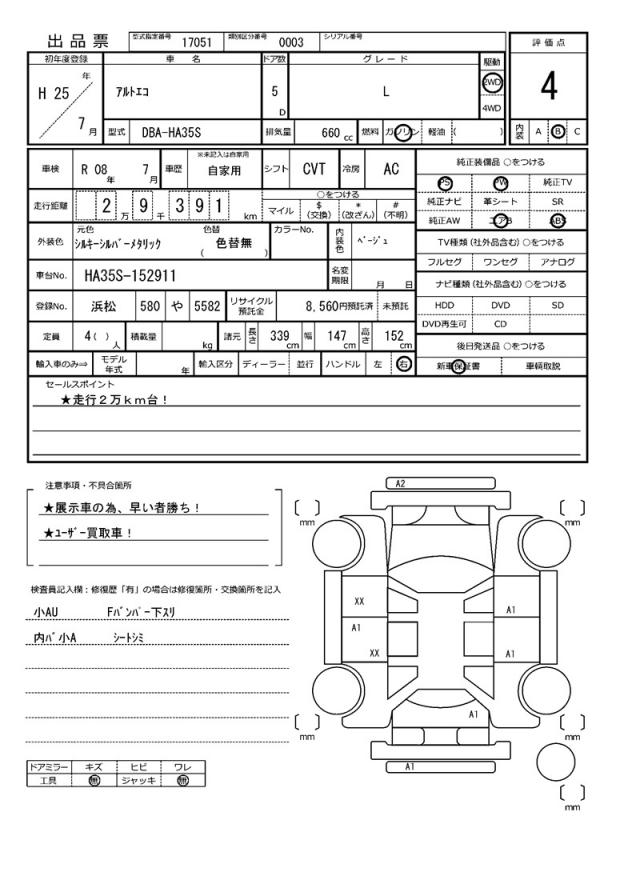 出品票 型式指定番号 17051 類別区分番号 0003 シリアル番号
評価点
4
内装 A B C
初年度登録 車名 ドア数 グレード 駆動
H 25 年 7 月 ｱﾙﾄｴｺ 5 D L 2WD 4WD
型式 DBA-HA35S 排気量 660 cc 燃料 ガソリン 軽油 ( )
車検 R 08 年 7 月 車歴 ※未記入は自家用 自家用 シフト CVT 冷房 AC
走行距離 2 万 9 千 3 9 1 km ○をつける
マイル $ (交換) * (改ざん) # (不明)
外装色 元色 ｼﾙｷｰｼﾙﾊﾞｰﾒﾀﾘｯｸ 色替 ( 色替無 ) カラーNo. 内装色 ﾍﾞｰｼﾞｭ
車台No. HA35S-152911 名変期限 月 日
登録No. 浜松 580 や 5582 リサイクル預託金 8,560円預託済 未預託
定員 4 ( ) 人 積載量 kg 諸元 長さ 339 cm 幅 147 cm 高さ 152 cm
輸入車のみ⇒ モデル年式 年 輸入区分 ディーラー 並行 ハンドル 左 右
純正装備品 ○をつける
PS PW 純正TV
純正ナビ 革シート SR
純正AW エアB ABS
TV種類 (社外品含む) ○をつける
フルセグ ワンセグ アナログ
ナビ種類 (社外品含む) ○をつける
HDD DVD SD
DVD再生可 CD
後日発送品 ○をつける
新車保証書 車輌取説
セールスポイント
★走行２万ｋｍ台！
注意事項・不具合箇所
★展示車の為、早い者勝ち！
★ﾕｰｻﾞｰ買取車！
検査員記入欄：修復歴「有」の場合は修復箇所・交換箇所を記入
小AU Fﾊﾞﾝﾊﾟｰ下ｽﾘ
内ﾊﾟ小A ｼｰﾄｼﾐ
ドアミラー キズ ヒビ ワレ
工具 無 ジャッキ 無
A2
mm mm
XX A1
A1
XX A1
A1
mm mm
A1
mm